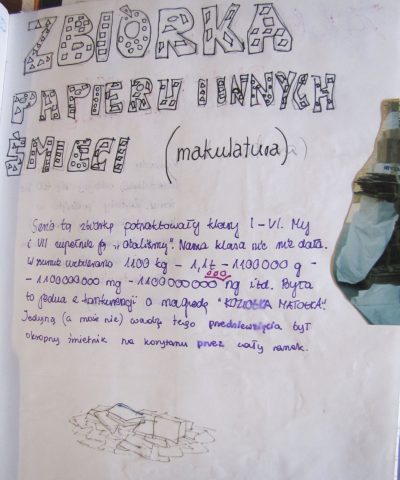 ZBIÓRKA
PAPIERU I INNYCH
ŚMIECI (makulatura)
Serio tą zbiórkę potraktowały klasy I-VI. My
i VII zupełnie ją "olaliśmy". Nasza klasa nic nie dała.
W sumie uzbierano 1100 kg - 1,1t - 1100000 g -
000
- 1100000000 mg - 1100000000 ng itd. Była
to jedna z konkurencji o nagrodę "KOZIOŁKA MATOŁKA".
Jedyną (a może nie) wadą tego przedsięwzięcia był
okropny śmietnik na korytarzu przez cały ranek.